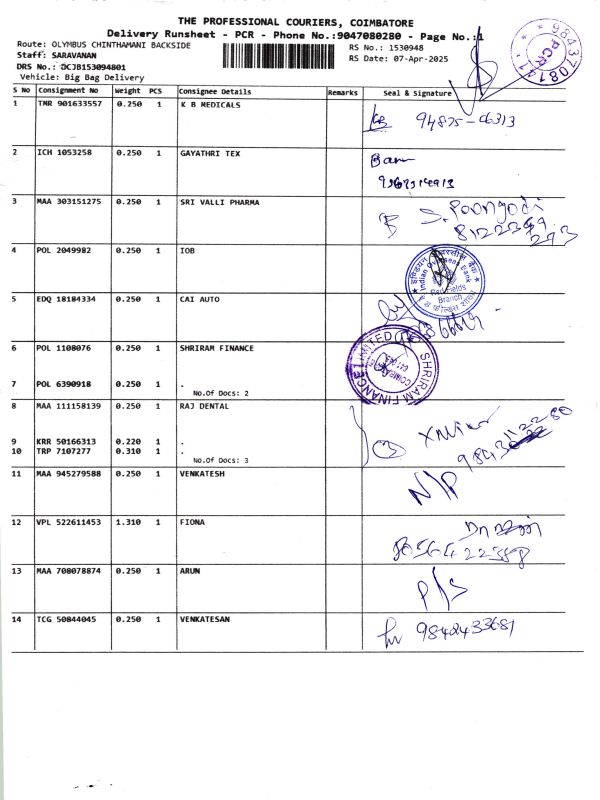 THE PROFESSIONAL COURIERS, COIMBATORE
Delivery Runsheet - PCR - Phone No.:9047080280 - Page No.:1
Route: OLYMBUS CHINTHAMANI BACKSIDE RS No.: 1530948
Staff: SARAVANAN RS Date: 07-Apr-2025
DRS No.: DCJB153094801
Vehicle: Big Bag Delivery
PCR
S No Consignment No Weight PCS Consignee Details Remarks Seal & Signature
1 TMR 901633557 0.250 1 K B MEDICALS
94875-06313
2 ICH 1053258 0.250 1 GAYATHRI TEX
3 MAA 303151275 0.250 1 SRI VALLI PHARMA
S. Poongodi
4 POL 2049982 0.250 1 IOB
Indian Overseas Bank
Red Fields
Branch
5 EDQ 18184334 0.250 1 CAI AUTO
6 POL 1108076 0.250 1 SHRIRAM FINANCE
SHRIRAM FINANCE LIMITED
7 POL 6390918 0.250 1 .
No.Of Docs: 2
8 MAA 111158139 0.250 1 RAJ DENTAL
9 KRR 50166313 0.220 1 .
10 TRP 7107277 0.310 1 .
No.Of Docs: 3
11 MAA 945279588 0.250 1 VENKATESH
N/P
12 VPL 522611453 1.310 1 FIONA
13 MAA 708078874 0.250 1 ARUN
P/S
14 TCG 50844045 0.250 1 VENKATESAN
9842433681